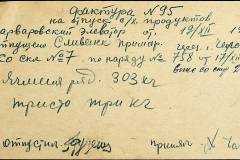 Фактура N 95
на отпуск с/х. продуктов
арваровский Элеватор от. 12/XII
отпущен Сливенск приемщ. через
Со скл №7. по наряду № 758 от 17/XII
Ячменя ряд. 303 кг
триста три кг
Отпустил принял